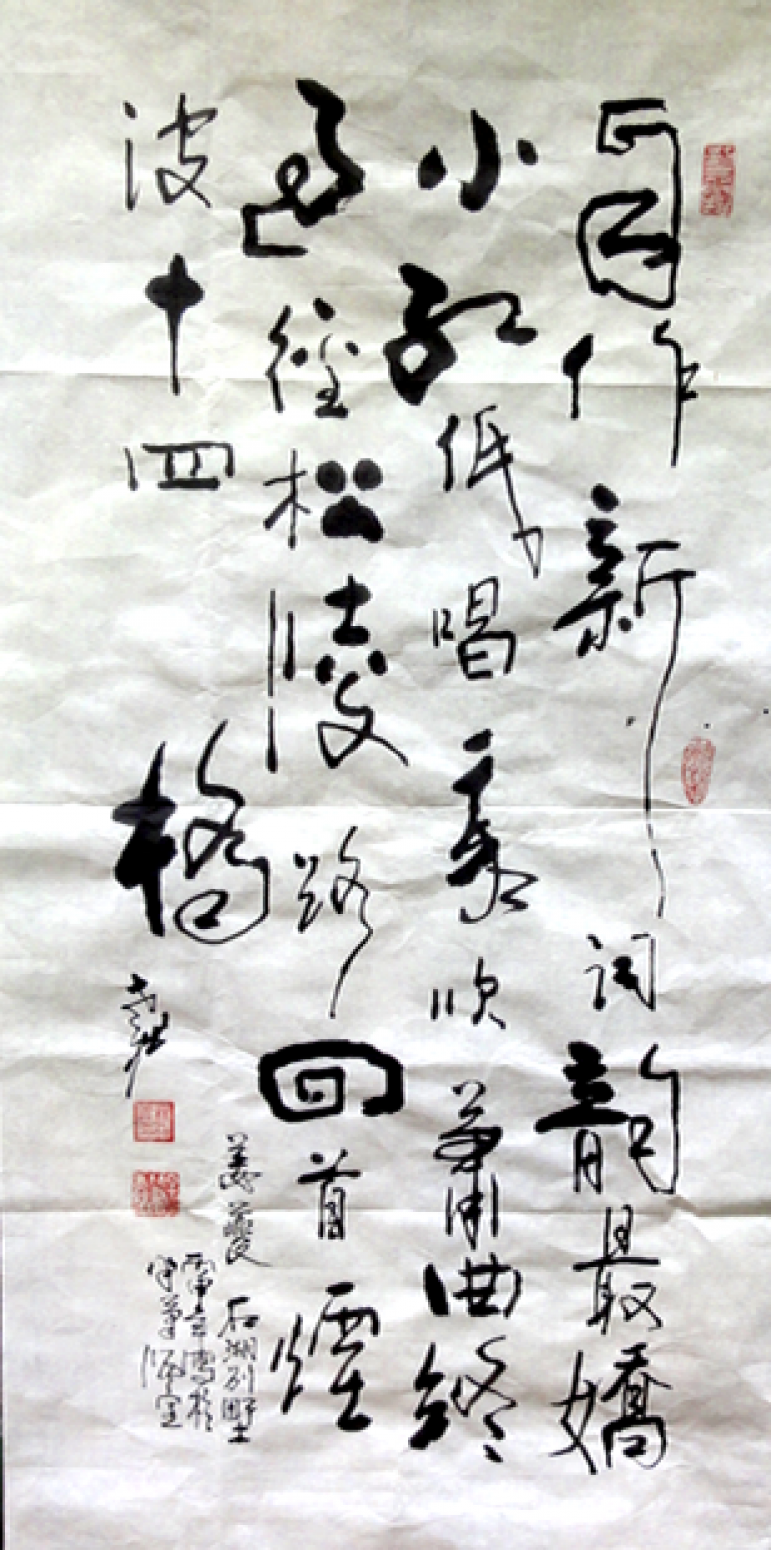 自作新詞韻最嬌
小紅低唱我吹簫曲終
過徑松陵路回首煙
波十四橋
姜夔 石湖別墅
丙申 書於